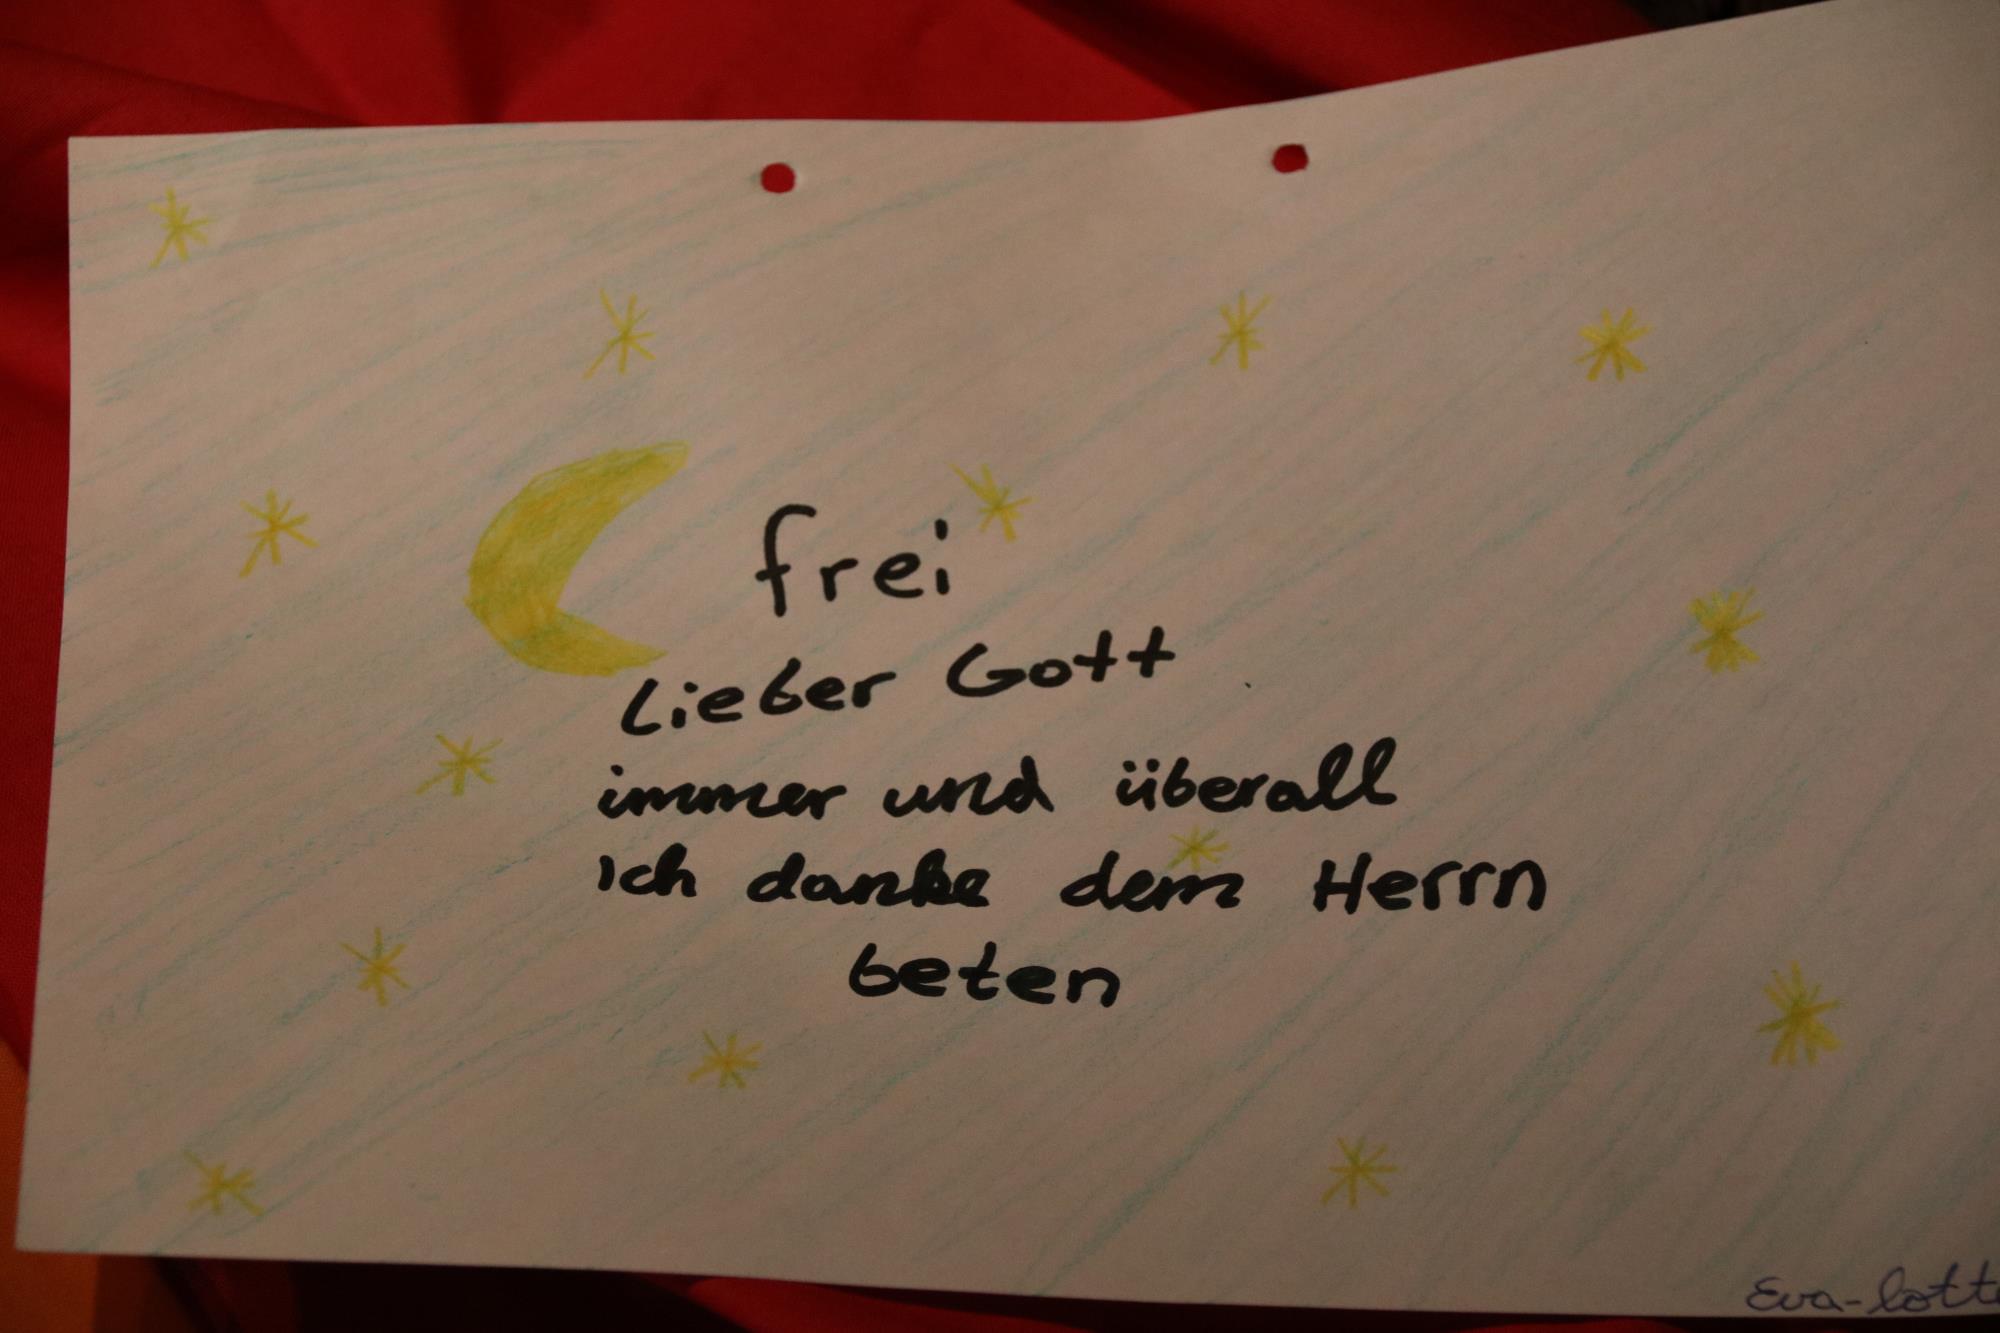 frei
Lieber Gott
immer und überall
Ich danke dem Herrn
beten
Eva-lotte